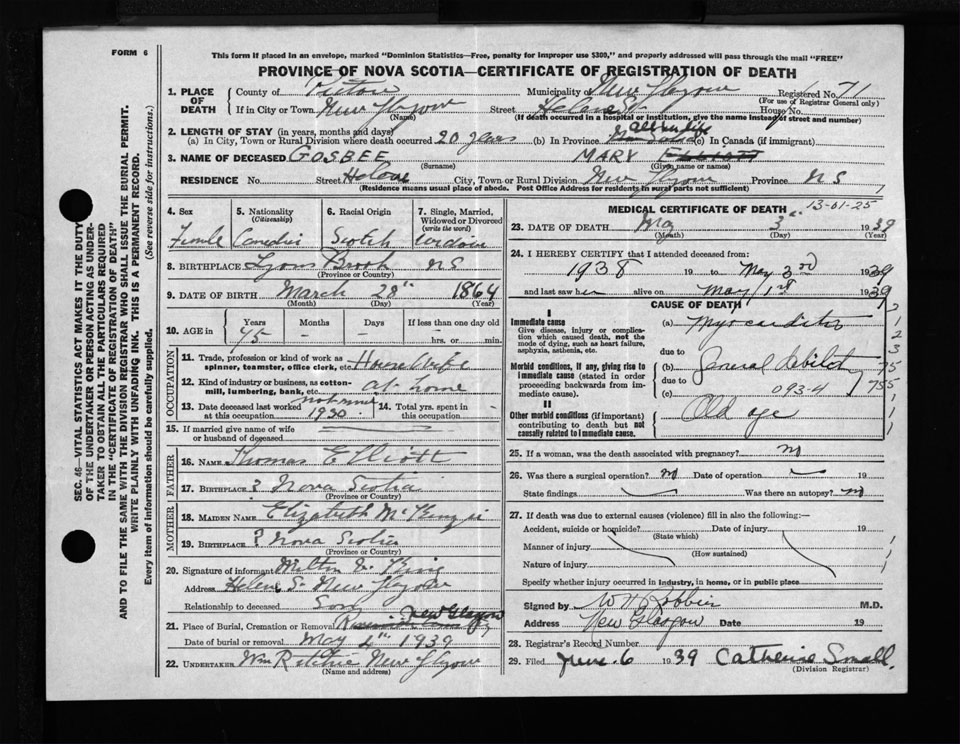 FORM 6
This form if placed in an envelope, marked "Dominion Statistics—Free, penalty for improper use $300," and properly addressed will pass through the mail "FREE"
PROVINCE OF NOVA SCOTIA—CERTIFICATE OF REGISTRATION OF DEATH
SEC. 46—VITAL STATISTICS ACT MAKES IT THE DUTY
OF THE UNDERTAKER OR PERSON ACTING AS UNDER-
TAKER TO OBTAIN ALL THE PARTICULARS REQUIRED
IN THE "CERTIFICATE OF REGISTRATION OF DEATH"
AND TO FILE THE SAME WITH THE DIVISION REGISTRAR WHO SHALL ISSUE THE BURIAL PERMIT.
WRITE PLAINLY WITH UNFADING INK. THIS IS A PERMANENT RECORD.
Every item of information should be carefully supplied. (See reverse side for instructions.)
1. PLACE OF DEATH County of Pictou Municipality of New Glasgow Registered No. 71
(For use of Registrar General only)
If in City or Town New Glasgow Street Helen St House No.
(Name) (If death occurred in a hospital or institution, give the name instead of street and number)
2. LENGTH OF STAY (in years, months and days)
(a) In City, Town or Rural Division where death occurred 20 years (b) In Province all her life (c) In Canada (if immigrant)
3. NAME OF DECEASED GOSBEE MARY Elliott
(Surname) (Given name or names)
RESIDENCE No. Street Helen City, Town or Rural Division New Glasgow Province NS
(Residence means usual place of abode. Post Office Address for residents in rural parts not sufficient)
4. Sex 5. Nationality (Citizenship) 6. Racial Origin 7. Single, Married, Widowed or Divorced (write the word)
Female Canadian Scotch Widow
8. BIRTHPLACE Lyons Brook NS
(Province or Country)
9. DATE OF BIRTH March 28" 1864
(Month) (Day) (Year)
10. AGE in Years Months Days If less than one day old
75 - - hrs. or min.
OCCUPATION
11. Trade, profession or kind of work as spinner, teamster, office clerk, etc. Housewife
12. Kind of industry or business, as cotton-mill, lumbering, bank, etc. at home
13. Date deceased last worked at this occupation 1930 14. Total yrs. spent in this occupation -
15. If married give name of wife or husband of deceased
FATHER
16. Name Thomas Elliott
17. Birthplace ? Nova Scotia
(Province or Country)
MOTHER
18. Maiden Name Elizabeth McKenzie
19. Birthplace ? Nova Scotia
(Province or Country)
20. Signature of informant
Address Helen St New Glasgow
Relationship to deceased Son
21. Place of Burial, Cremation or Removal New Glasgow
Date of burial or removal May 4th 1939
22. UNDERTAKER Wm Ritchie New Glasgow
(Name and address)
MEDICAL CERTIFICATE OF DEATH 13-01-25
23. DATE OF DEATH May 3" 1939
(Month) (Day) (Year)
24. I HEREBY CERTIFY that I attended deceased from:
1938 19 to May 3rd 1939
and last saw her alive on May 1st 1939
CAUSE OF DEATH
I
Immediate cause
Give disease, injury or complication which caused death, not the mode of dying, such as heart failure, asphyxia, asthenia, etc.
(a) Myocarditis
due to
Morbid conditions, if any, giving rise to immediate cause (stated in order proceeding backwards from immediate cause).
(b) General debility
due to
(c) 093-4
II
Other morbid conditions (if important) contributing to death but not causally related to immediate cause.
Old age
25. If a woman, was the death associated with pregnancy? no
26. Was there a surgical operation? no Date of operation 19
State findings Was there an autopsy? no
27. If death was due to external causes (violence) fill in also the following:—
Accident, suicide or homicide? Date of injury 19
(State which)
Manner of injury
(How sustained)
Nature of injury
Specify whether injury occurred in industry, in home, or in public place
Signed by M.D.
Address New Glasgow Date 19
28. Registrar's Record Number
29. Filed June 6 1939 Catherine Small
(Division Registrar)